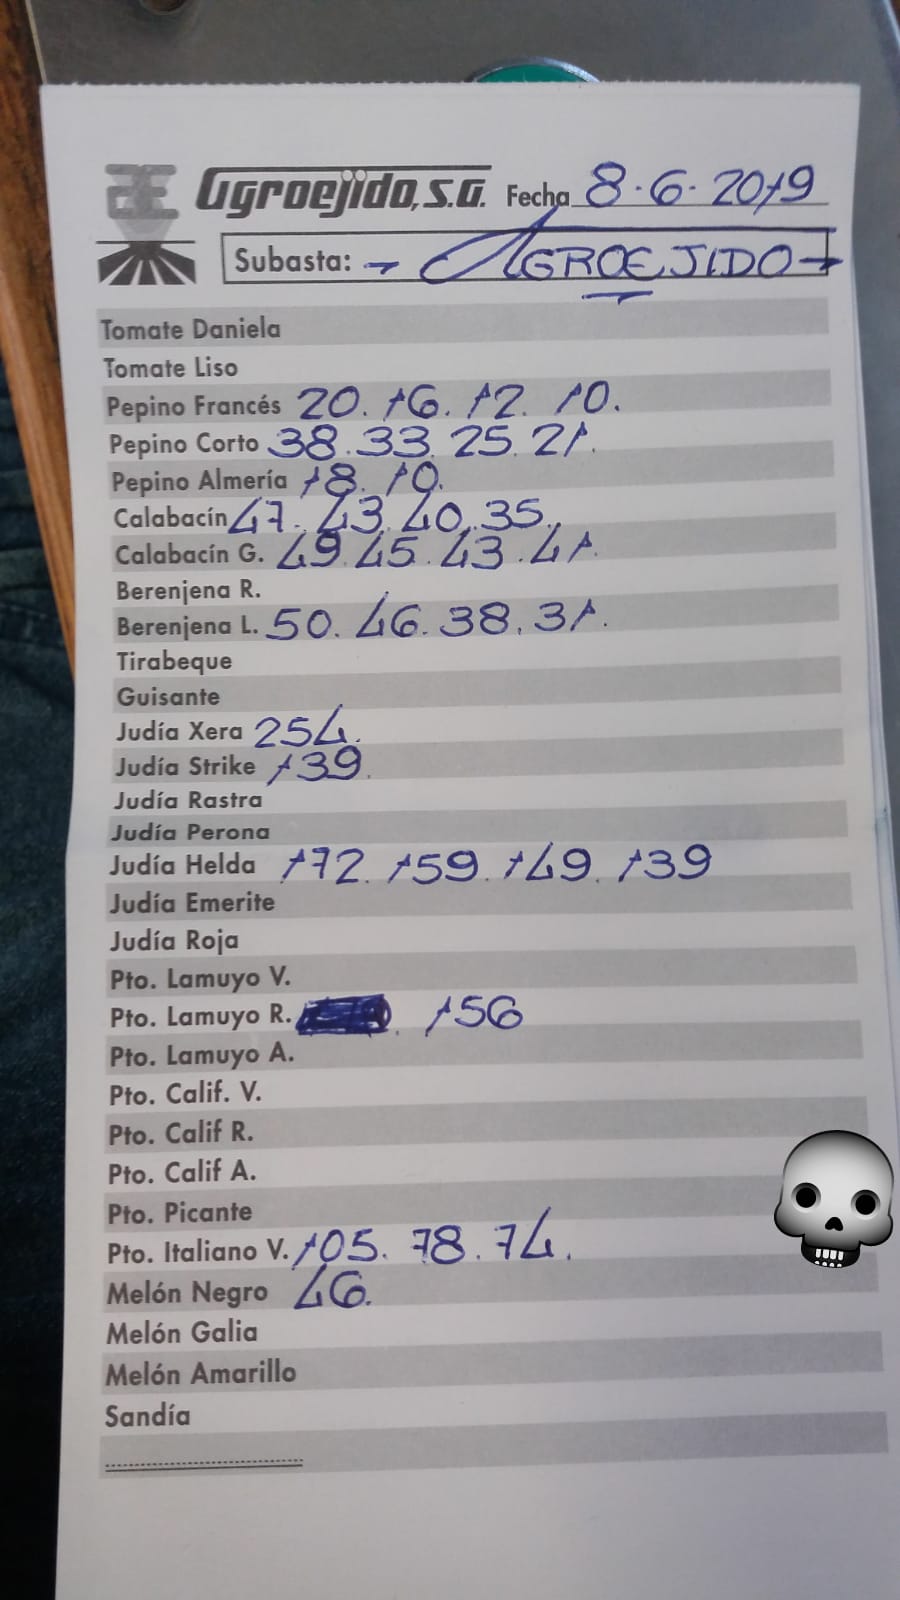 Agroejido, S.A. Fecha 8-6-2019
Subasta: - AGROEJIDO -
Tomate Daniela
Tomate Liso
Pepino Francés 20. 16. 12. 10.
Pepino Corto 38. 33. 25. 21.
Pepino Almería 18. 10.
Calabacín 47. 43. 40. 35.
Calabacín G. 49. 45. 43. 41.
Berenjena R.
Berenjena L. 50. 46. 38. 31.
Tirabeque
Guisante
Judía Xera 254.
Judía Strike 139.
Judía Rastra
Judía Perona
Judía Helda 172. 159. 149. 139
Judía Emerite
Judía Roja
Pto. Lamuyo V.
Pto. Lamuyo R. 156
Pto. Lamuyo A.
Pto. Calif. V.
Pto. Calif R.
Pto. Calif A.
Pto. Picante
Pto. Italiano V. 105. 78. 74.
Melón Negro 46.
Melón Galia
Melón Amarillo
Sandía